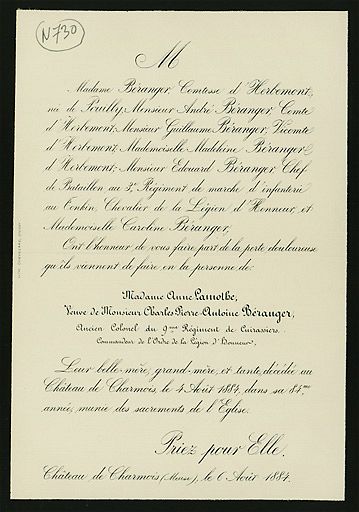 N730
M
Madame Béranger, Comtesse d'Herbemont,
née de Pouilly, Monsieur André Béranger, Comte
d'Herbemont, Monsieur Guillaume Béranger, Vicomte
d'Herbemont, Mademoiselle Madeleine Béranger
d'Herbemont, Monsieur Edouard Béranger, Chef
de Bataillon au 3e Régiment de marche d'infanterie
au Tonkin, Chevalier de la Légion d'Honneur, et
Mademoiselle Caroline Béranger,
Ont l'honneur de vous faire part de la perte douloureuse
qu'ils viennent de faire en la personne de
Madame Anne Lamothe,
Veuve de Monsieur Charles-Pierre-Antoine Béranger,
Ancien Colonel du 9me Régiment de Cuirassiers,
Commandeur de l'Ordre de la Légion d'Honneur,
Leur belle-mère, grand-mère, et tante, décédée au
Château de Charmois, le 4 Août 1884, dans sa 84me
année, munie des sacrements de l'Eglise.
Priez pour Elle.
Château de Charmois (Meuse), le 6 Août 1884.